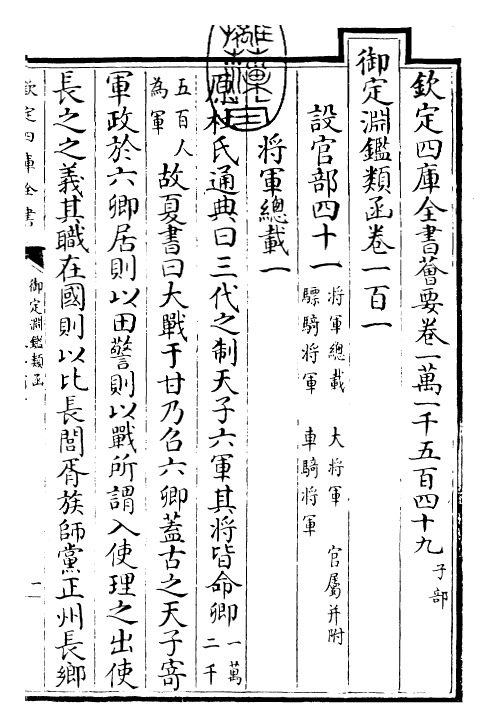 欽定四庫全書薈要卷一萬一千五百四十九 子部
御定淵鑑類函卷一百一
設官部四十一 將軍總載 大將軍 官屬并附
驃騎將軍 車騎將軍
將軍總載一
原杜氏通典曰三代之制天子六軍其將皆命卿 一萬二千
五百人為軍 故夏書曰大戰于甘乃召六卿蓋古之天子寄
軍政於六卿居則以田警則以戰所謂入使理之出使
長之之義其職在國則以比長閭胥族師黨正州長鄉
欽定四庫全書
御定淵鑑類函
一